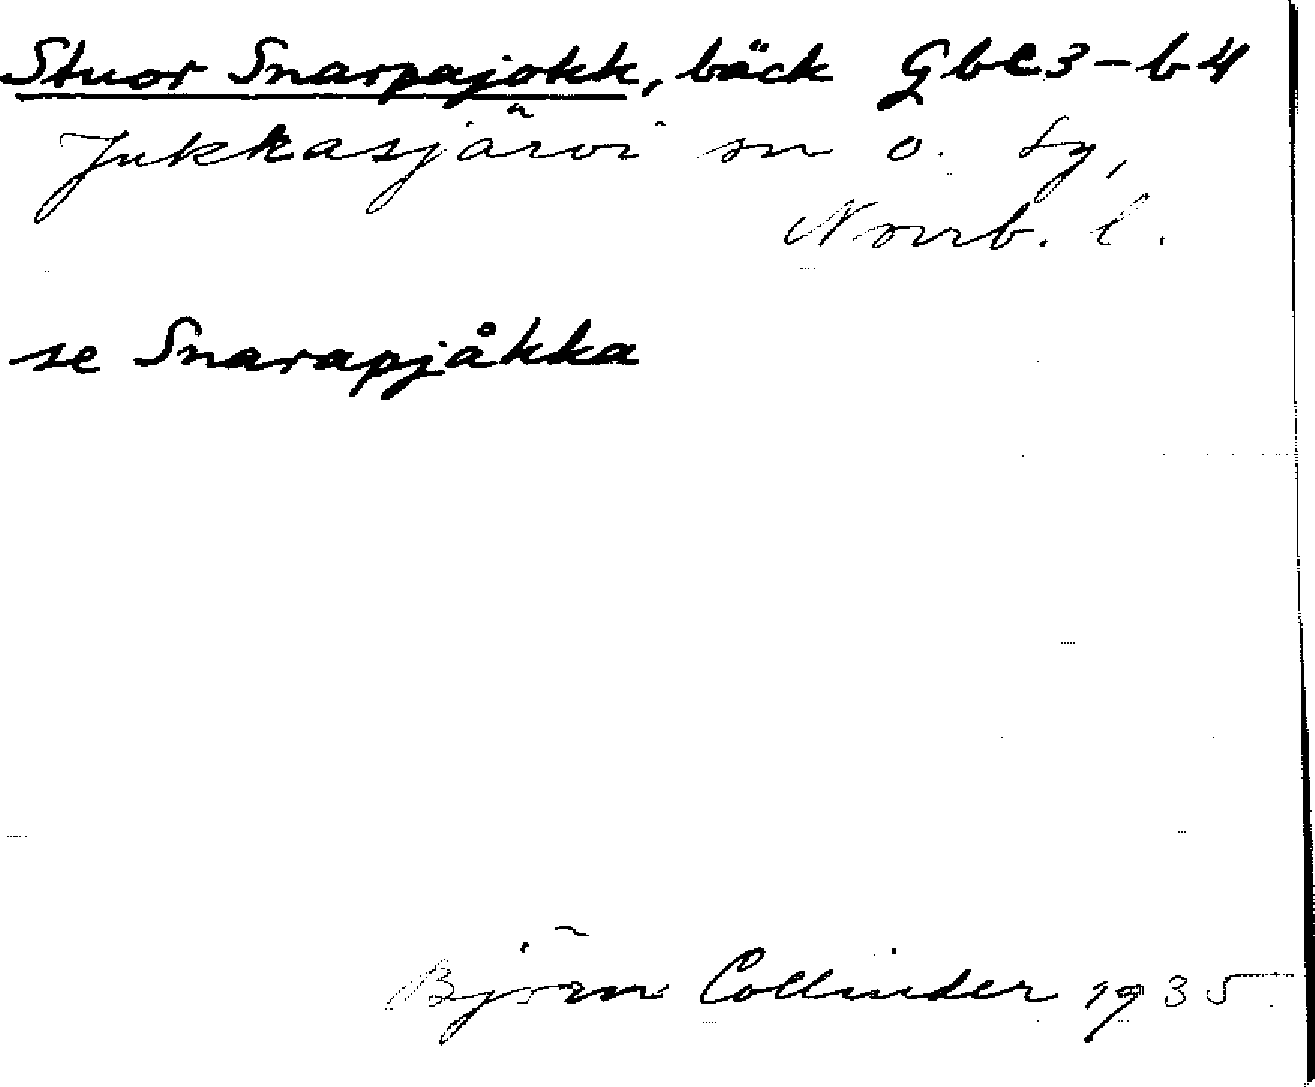 Stuor Snarpajokk, bäck Gbc3-b4
Jukkasjärvi sn o. tg,
Norrb. l.
se Snarapjåkka
Björn Collinder 1935